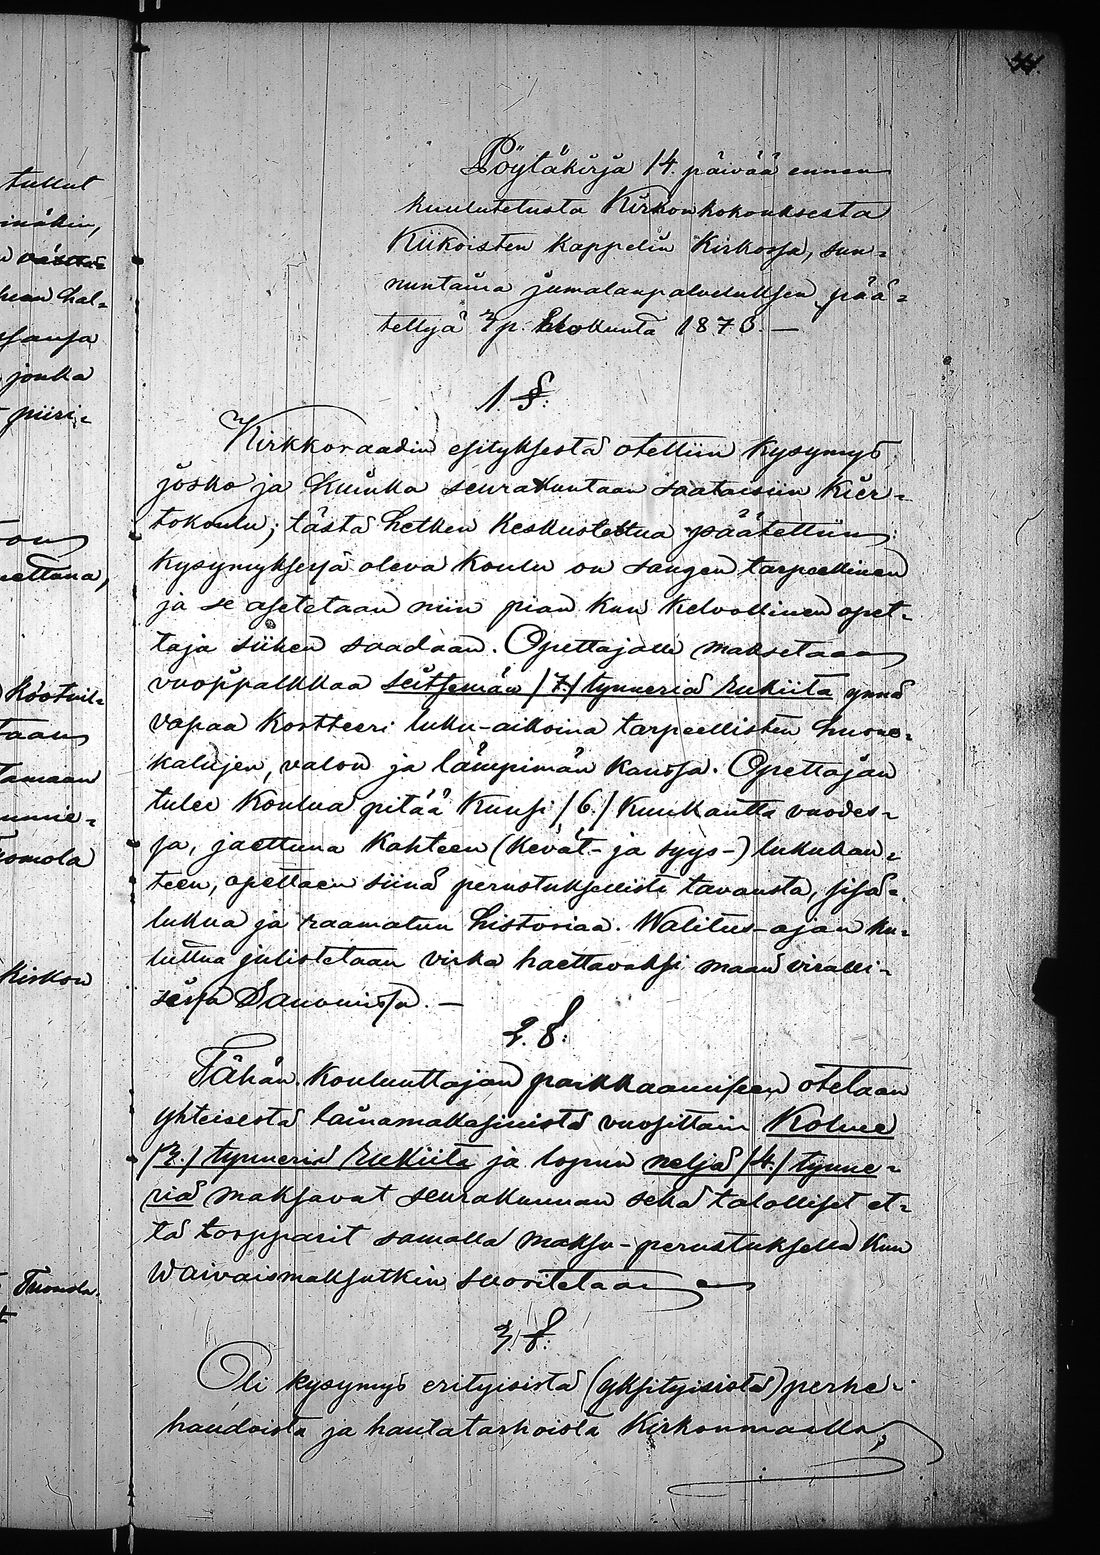 tullut
inäkin,
hean hal-
ssansa
jonka
piiri-
nettawa,
Kootuil-
taan
tamaan
nnie-
uomola
Kirkon
Tuomola.
Pöytäkirja 14 päivää ennen
kuulutetusta Kirkonkokouksesta
Kiikoisten kappelin Kirkossa, sun-
nuntaina jumalanpalveluksen pää-
tettyä 3 p. Elokuuta 1873. —
1. §:
Kirkkoraadin esityksestä otettiin kysymys
josko ja kuinka seurakuntaan saataisiin kier-
tokoulu; tästä hetken keskusteltua päätettiin:
kysymyksessä oleva koulu on sangen tarpeellinen
ja se asetetaan niin pian kun kelvollinen opet-
taja siihen saadaan. Opettajalle maksetaan
vuosipalkkaa seitsemän /7/ tynneriä rukiita ynnä
vapaa kortteeri luku-aikoina tarpeellisten huone-
kalujen, valon ja lämpimän kanssa. Opettajan
tulee koulua pitää kuusi /6/ kuukautta vuodes-
sa, jaettuna kahteen (kevät- ja syys-) lukukau-
teen, opettaen siinä perustuksellisti tavausta, sisä-
lukua ja raamatun historiaa. Walitus-ajan ku-
luttua julistetaan virka haettavaksi maan viralli-
sissa Sanomissa. —
2. §.
Tähän koulunttajan palkkaamiseen otetaan
yhteisestä lainamakasinista vuosittain Kolme
/3./ tynneriä Rukiita ja lopun neljä /4./ tynne-
riä maksavat seurakunnan sekä talolliset et-
tä torpparit samalla maksu-perustuksella kun
Waivaismaksutkin suoritetaan
3. §:
Oli kysymys erityisistä (yksityisistä) perhe-
haudoista ja hautatarhoista Kirkonmaalla;